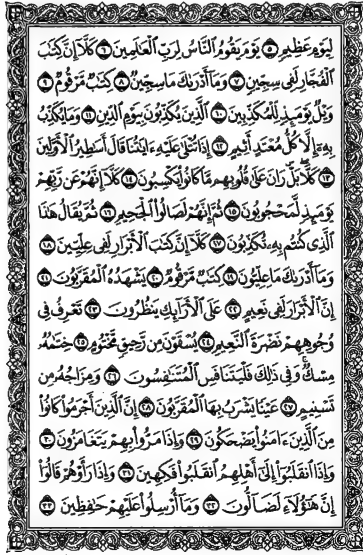 لِيَوْمٍ عَظِيمٍ ٥ يَوْمَ يَقُومُ النَّاسُ لِرَبِّ الْعَالَمِينَ ٦ كَلَّا إِنَّ كِتَابَ
الْفُجَّارِ لَفِي سِجِّينٍ ٧ وَمَا أَدْرَاكَ مَا سِجِّينٌ ٨ كِتَابٌ مَرْقُومٌ ٩
وَيْلٌ يَوْمَئِذٍ لِلْمُكَذِّبِينَ ١٠ الَّذِينَ يُكَذِّبُونَ بِيَوْمِ الدِّينِ ١١ وَمَا يُكَذِّبُ
بِهِ إِلَّا كُلُّ مُعْتَدٍ أَثِيمٍ ١٢ إِذَا تُتْلَى عَلَيْهِ آيَاتُنَا قَالَ أَسَاطِيرُ الْأَوَّلِينَ
١٣ كَلَّا بَلْ رَانَ عَلَى قُلُوبِهِمْ مَا كَانُوا يَكْسِبُونَ ١٤ كَلَّا إِنَّهُمْ عَنْ رَبِّهِمْ
يَوْمَئِذٍ لَمَحْجُوبُونَ ١٥ ثُمَّ إِنَّهُمْ لَصَالُوا الْجَحِيمِ ١٦ ثُمَّ يُقَالُ هَٰذَا
الَّذِي كُنْتُمْ بِهِ تُكَذِّبُونَ ١٧ كَلَّا إِنَّ كِتَابَ الْأَبْرَارِ لَفِي عِلِّيِّينَ ١٨
وَمَا أَدْرَاكَ مَا عِلِّيُّونَ ١٩ كِتَابٌ مَرْقُومٌ ٢٠ يَشْهَدُهُ الْمُقَرَّبُونَ ٢١
إِنَّ الْأَبْرَارَ لَفِي نَعِيمٍ ٢٢ عَلَى الْأَرَائِكِ يَنْظُرُونَ ٢٣ تَعْرِفُ فِي
وُجُوهِهِمْ نَضْرَةَ النَّعِيمِ ٢٤ يُسْقَوْنَ مِنْ رَحِيقٍ مَخْتُومٍ ٢٥ خِتَامُهُ
مِسْكٌ وَفِي ذَٰلِكَ فَلْيَتَنَافَسِ الْمُتَنَافِسُونَ ٢٦ وَمِزَاجُهُ مِنْ
تَسْنِيمٍ ٢٧ عَيْنًا يَشْرَبُ بِهَا الْمُقَرَّبُونَ ٢٨ إِنَّ الَّذِينَ أَجْرَمُوا كَانُوا
مِنَ الَّذِينَ آمَنُوا يَضْحَكُونَ ٢٩ وَإِذَا مَرُّوا بِهِمْ يَتَغَامَزُونَ ٣٠
وَإِذَا انْقَلَبُوا إِلَى أَهْلِهِمُ انْقَلَبُوا فَكِهِينَ ٣١ وَإِذَا رَأَوْهُمْ قَالُوا
إِنَّ هَٰؤُلَاءِ لَضَالُّونَ ٣٢ وَمَا أُرْسِلُوا عَلَيْهِمْ حَافِظِينَ ٣٣